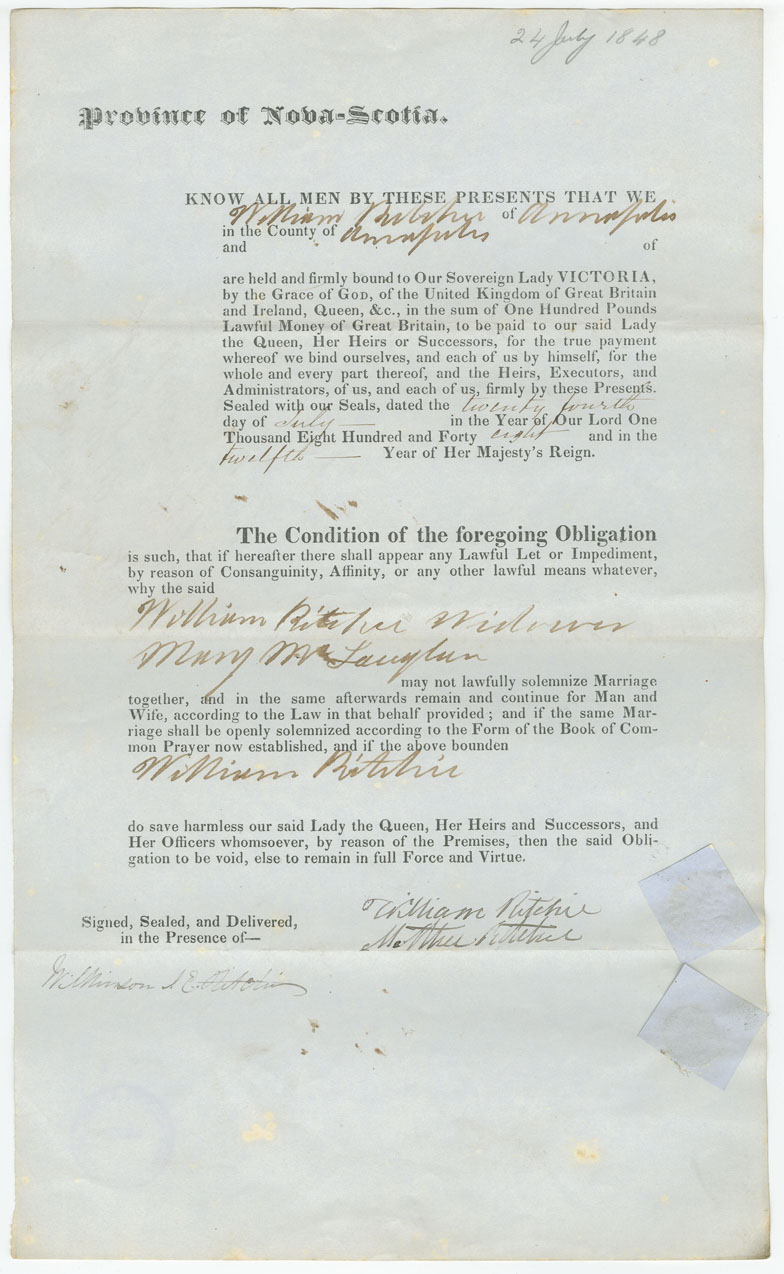 24 July 1848
Province of Nova-Scotia.
KNOW ALL MEN BY THESE PRESENTS THAT WE
William Ritchie of Annapolis
in the County of Annapolis
and of
are held and firmly bound to Our Sovereign Lady VICTORIA,
by the Grace of GOD, of the United Kingdom of Great Britain
and Ireland, Queen, &c., in the sum of One Hundred Pounds
Lawful Money of Great Britain, to be paid to our said Lady
the Queen, Her Heirs or Successors, for the true payment
whereof we bind ourselves, and each of us by himself, for the
whole and every part thereof, and the Heirs, Executors, and
Administrators, of us, and each of us, firmly by these Presents.
Sealed with our Seals, dated the twenty fourth
day of July — in the Year of Our Lord One
Thousand Eight Hundred and Forty eight and in the
twelfth — Year of Her Majesty's Reign.
The Condition of the foregoing Obligation
is such, that if hereafter there shall appear any Lawful Let or Impediment,
by reason of Consanguinity, Affinity, or any other lawful means whatever,
why the said
William Ritchie Widower
Mary McLauglin
may not lawfully solemnize Marriage
together, and in the same afterwards remain and continue for Man and
Wife, according to the Law in that behalf provided; and if the same Mar-
riage shall be openly solemnized according to the Form of the Book of Com-
mon Prayer now established, and if the above bounden
William Ritchie
do save harmless our said Lady the Queen, Her Heirs and Successors, and
Her Officers whomsoever, by reason of the Premises, then the said Obli-
gation to be void, else to remain in full Force and Virtue.
William Ritchie
Signed, Sealed, and Delivered,
Ritchie
in the Presence of—
Wilkinson